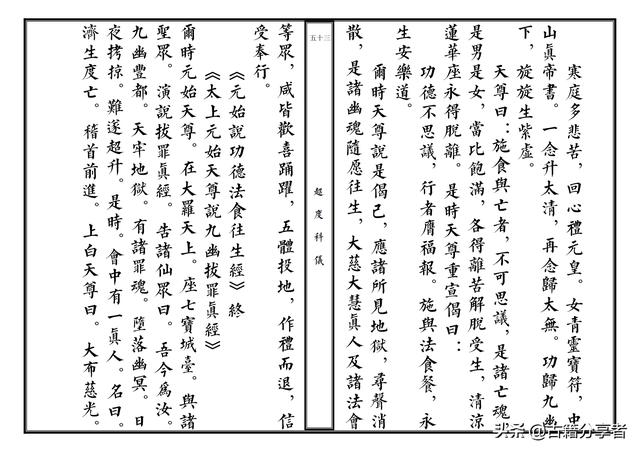 寒庭多悲苦，回心禮元皇。女青靈寶符，中
山眞帝書。一念升太清，再念歸太無。功歸九幽
下，旋旋生紫虛。
天尊曰：施食與亡者，不可思議，是諸亡魂
是男是女，當比飽滿，各得離苦解脫受生，清涼
蓮華座永得脫離。是時天尊重宣偈曰：
功德不思議，行者膺福報。施與法食餐，永
生安樂道。
爾時天尊說是偈已，應諸所見地獄，尋聲消
散，是諸幽魂隨愿往生，大慈大慧眞人及諸法會
五十三
超度科儀
等眾，咸皆歡喜踊躍，五體投地，作禮而退，信
受奉行。
《元始說功德法食往生經》終
《太上元始天尊說九幽拔罪眞經》
爾時元始天尊。在大羅天上。座七寶城臺。與諸
聖眾。演說拔罪眞經。告諸仙眾曰。吾今爲汝。
九幽豐都。天牢地獄。有諸罪魂。墮落幽冥。日
夜拷掠。難遂超升。是時。會中有一眞人。名曰。
濟生度亡。稽首前進。上白天尊曰。大布慈光。
头条 @古籍分享者